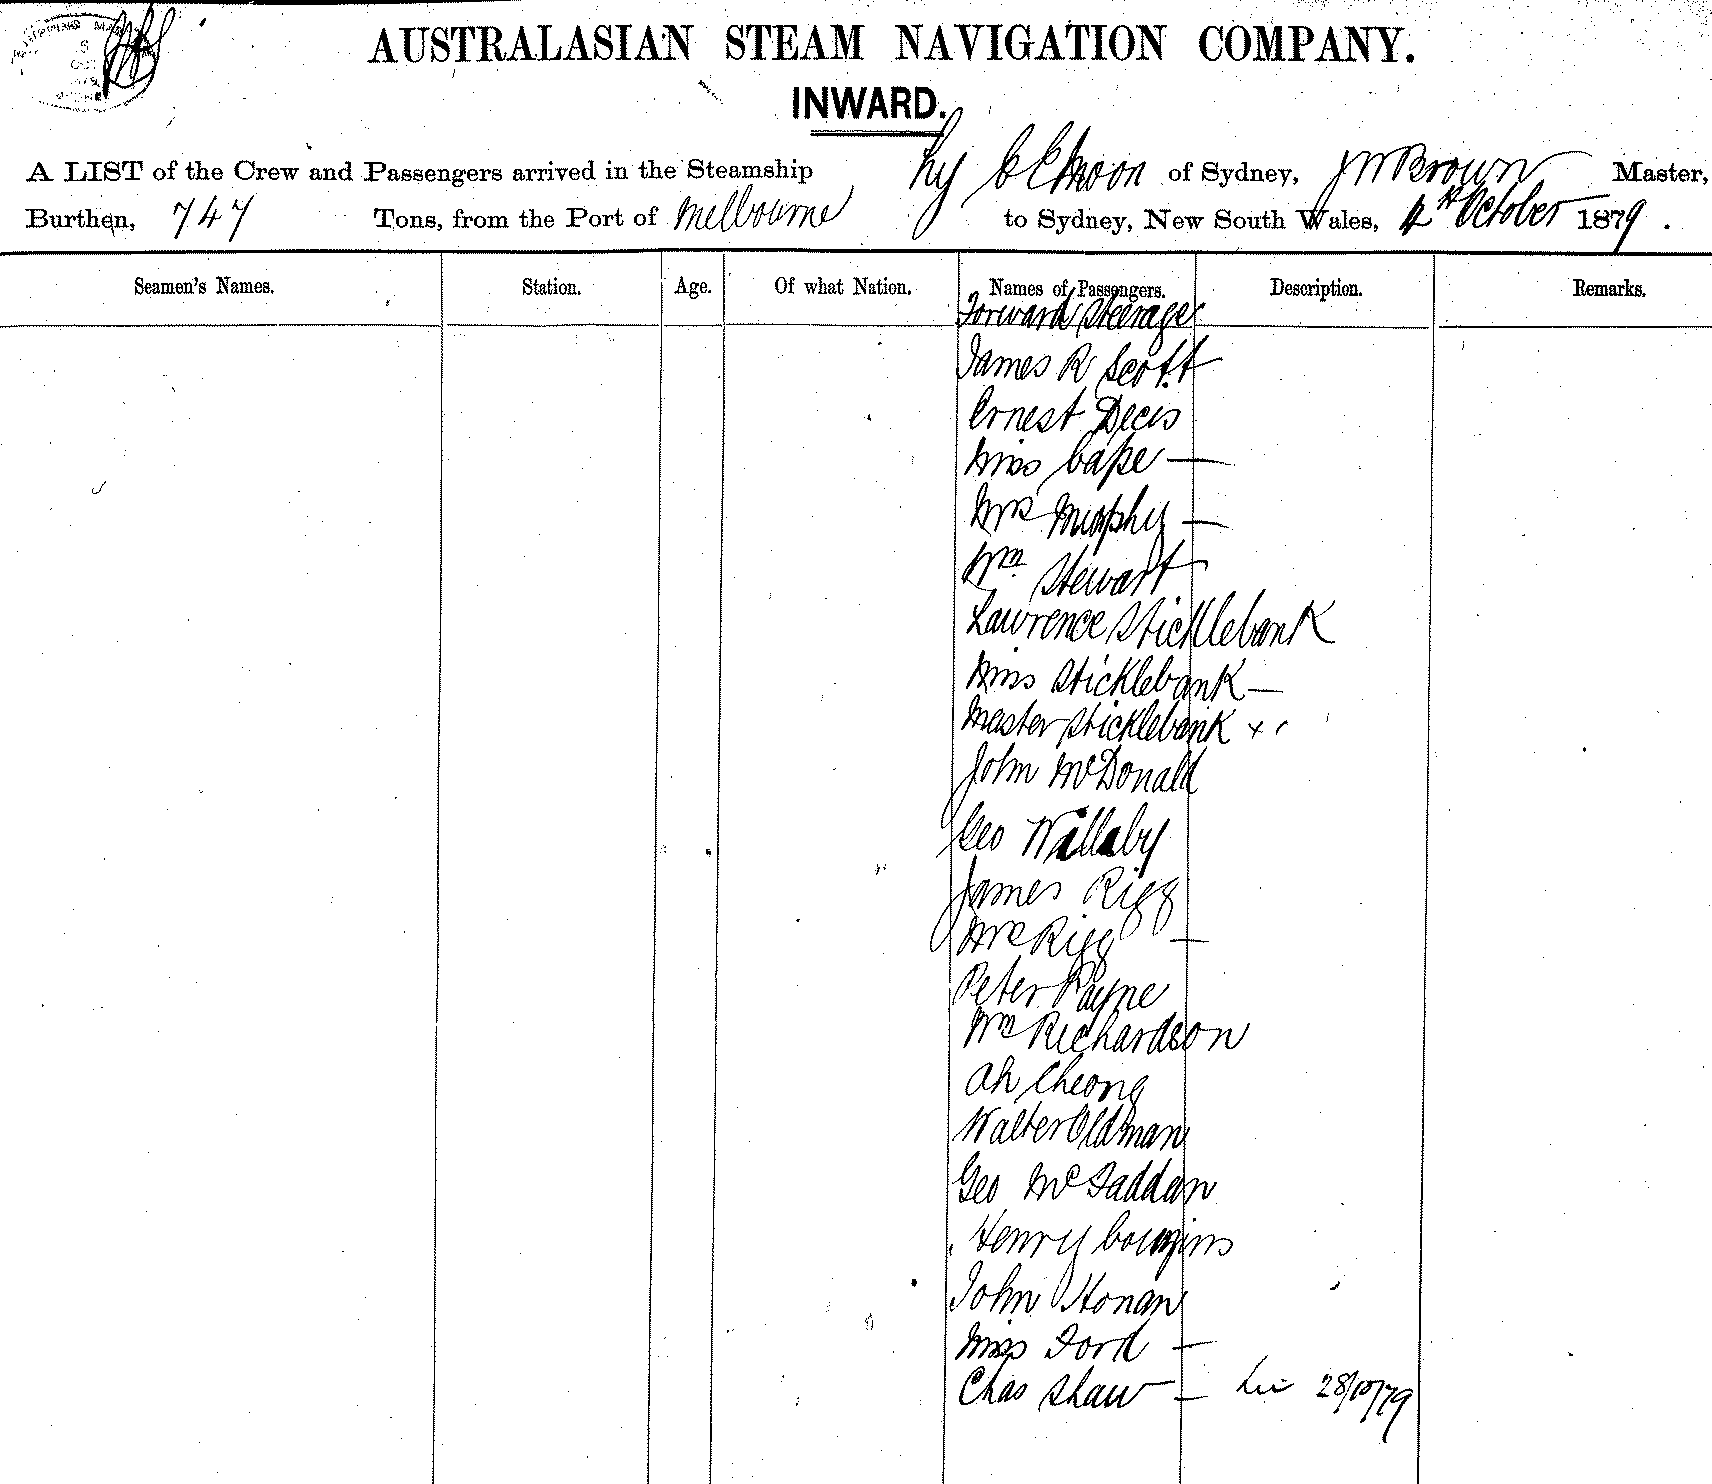 AUSTRALASIAN STEAM NAVIGATION COMPANY.
INWARD.
A LIST of the Crew and Passengers arrived in the Steamship Ly ee Moon of Sydney, J W Brown Master,
Burthen, 747 Tons, from the Port of Melbourne to Sydney, New South Wales, October 1879.
Seamen's Names. Station. Age. Of what Nation. Names of Passengers. Description. Remarks.
Forward Steerage
James R Scott
Ernest Decis
Miss Cape —
Mrs Murphy —
Wm Stewart
Lawrence Sticklebank
Miss Sticklebank —
Master Sticklebank
John McDonald
Geo Willaby
James Rigg
Mrs Rigg —
Peter Payne
Wm Richardson
Ah Cheong
Walter Oldman
Geo McFaddan
Henry
John Honan
Miss Ford —
Chas Shaw — 28/10/79